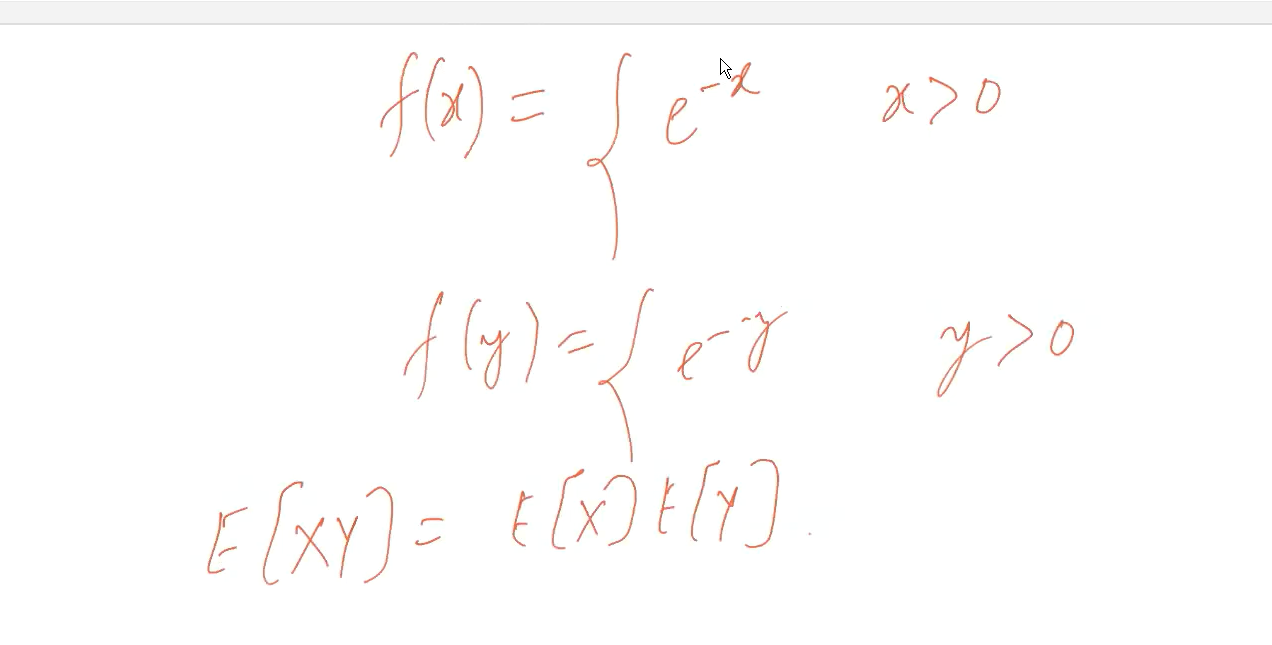 f(x) = { e^{-x} x>0
f(y) = { e^{-y} y>0
E[XY] = E[X] E[Y].